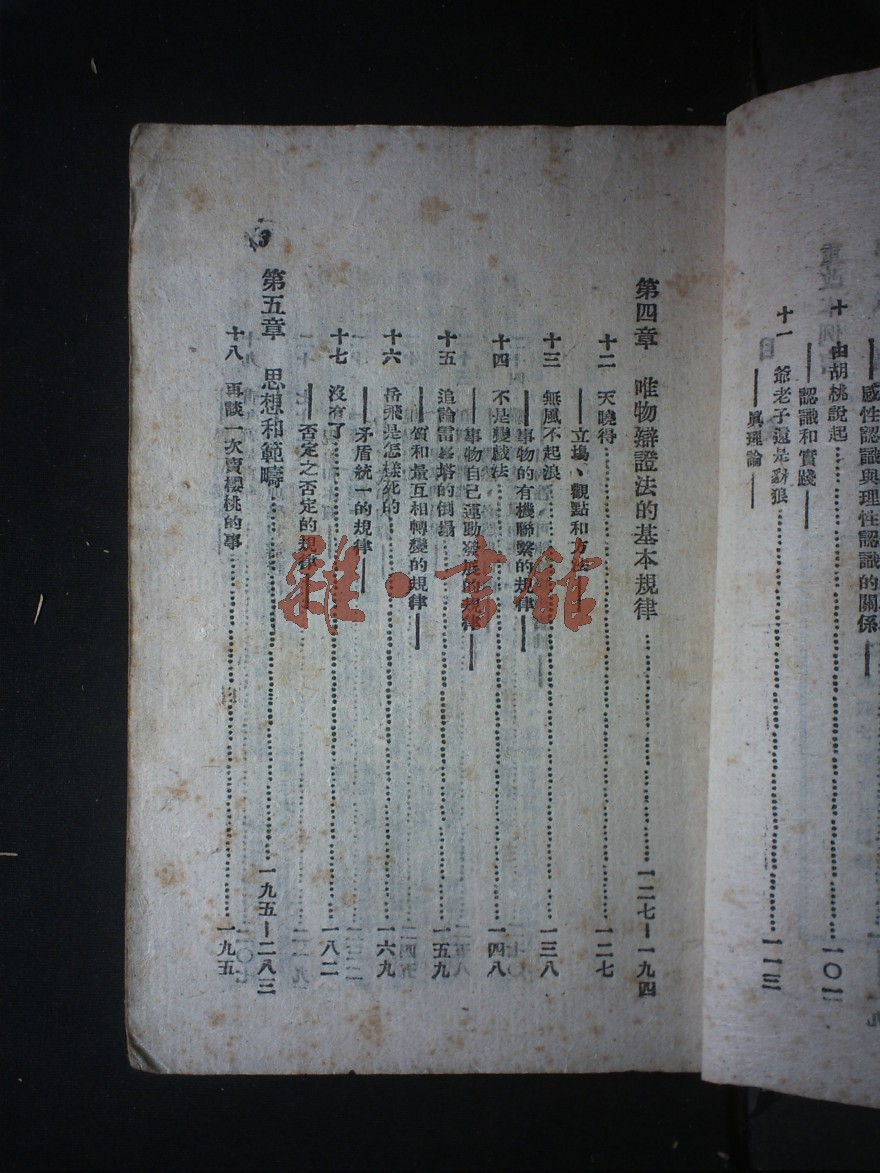 ——感性認識與理性認識的關係——
十　由胡桃說起……一〇二
——認識和實踐——
十一　爺老子還是豺狼……一一三
——眞理論——
第四章　唯物辯證法的基本規律……一二七—一九四
十二　天曉得……一二七
——立場、觀點和方法——
十三　無風不起浪……一三八
——事物的有機聯繫的規律——
十四　不是變戲法……一四八
——事物自己運動發展的規律——
十五　追論雷峯塔的倒塌……一五九
——質和量互相轉變的規律——
十六　岳飛是怎樣死的……一六九
——矛盾統一的規律——
十七　沒有了……一八二
——否定之否定的規律——
第五章　思想和範疇……一九五—二八三
十八　再談一次賣櫻桃的事……一九五
雜·書館